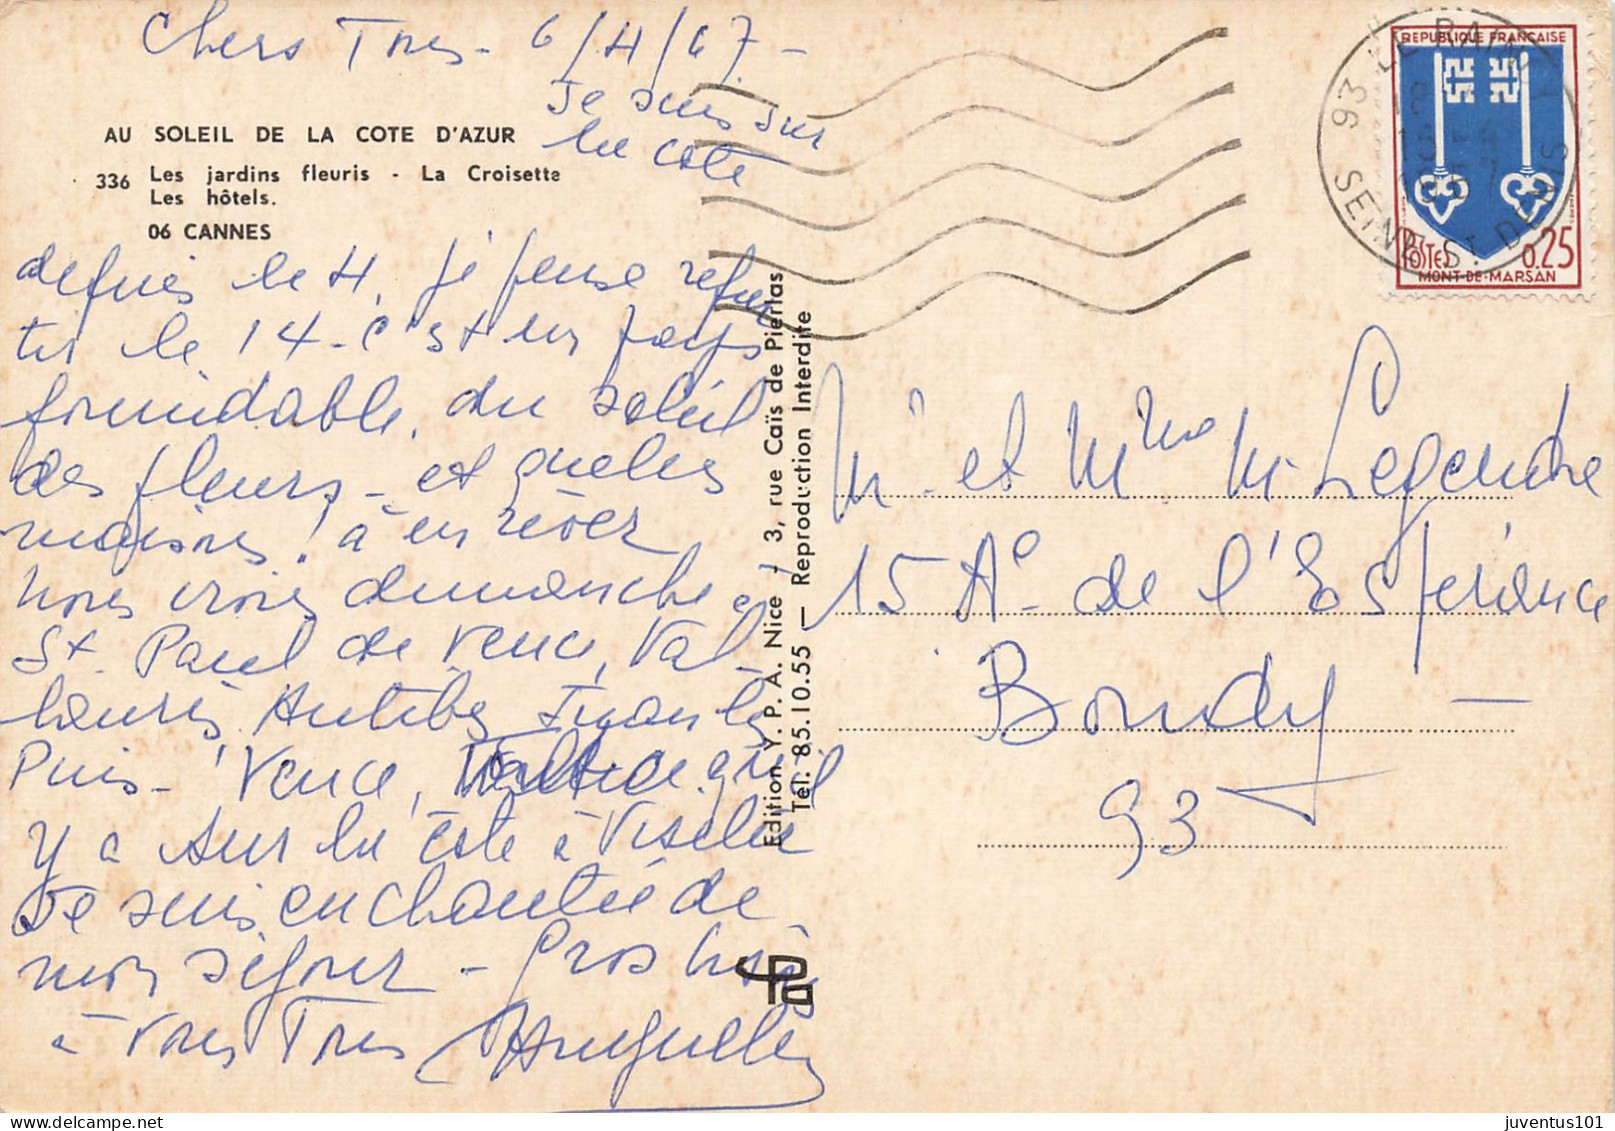 Chers Tous - 6/4/67 -
Je suis sur
la cote
AU SOLEIL DE LA COTE D'AZUR
336 Les jardins fleuris - La Croisette
Les hôtels.
06 CANNES
depuis le 4, je pense repar
tir le 14 - c'est un pays
formidable, du soleil
des fleurs - et quelles
maisons! à en rêver
nous irons dimanche à
St. Paul de Vence, Val-
lauris, Antibes, Juan les
Pins - Vence, qu'il
y a sur la côte
Je suis enchantée de
mon séjour - Gros bisous
à vous Tous
Edition Y. P. A. Nice / 3, rue Caïs de Pierlas
Tel. 85.10.55 — Reproduction Interdite
REPUBLIQUE FRANÇAISE
POSTES 0,25
MONT-DE-MARSAN
93 LE RAINCY
SEINE ST DENIS
Mr et Mme M. Legendre
15 Ae de l'Espérance
Bondy —
93
juventus101